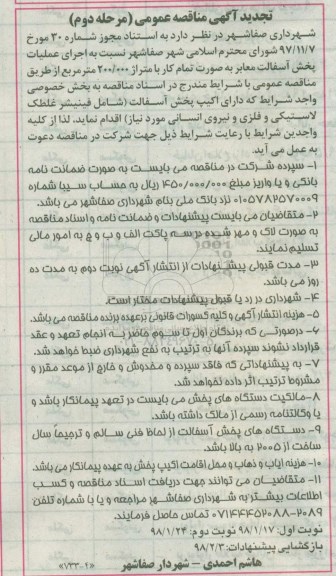 تجدید آگهی مناقصه عمومی (مرحله دوم)
شهرداری صفاشهر در نظر دارد به استناد مجوز شماره ۳۰ مورخ
۹۷/۱۱/۷ شورای محترم اسلامی شهر صفاشهر نسبت به اجرای عملیات
پخش آسفالت معابر به صورت تمام کار با متراژ ۲۰۰/۰۰۰ مترمربع از طریق
مناقصه عمومی با شرایط مندرج در اسناد مناقصه به بخش خصوصی
واجد شرایط که دارای اکیپ پخش آسفالت (شامل فینیشر غلطک
لاستیکی و فلزی و نیروی انسانی مورد نیاز) اقدام نماید. لذا از کلیه
واجدین شرایط با رعایت شرایط ذیل جهت شرکت در مناقصه دعوت
به عمل می آید.
۱- سپرده شرکت در مناقصه می بایست به صورت ضمانت نامه
بانکی و یا واریز مبلغ ۴۵۰/۰۰۰/۰۰۰ ریال به حساب سیبا شماره
۰۱۰۵۷۸۲۵۷۰۰۰۹ نزد بانک ملی بنام شهرداری صفاشهر می باشد.
۲- متقاضیان می بایست پیشنهادات و ضمانت نامه و اسناد مناقصه
به صورت لاک و مهر شده در سه پاکت الف و ب و ج به امور مالی
تسلیم نمایند.
۳- مدت قبولی پیشنهادات از انتشار آگهی نوبت دوم به مدت ده
روز می باشد.
۴- شهرداری در رد یا قبول پیشنهادات مختار است.
۵- هزینه انتشار آگهی و کلیه کسورات قانونی برعهده برنده مناقصه می باشد.
۶- درصورتی که برندگان اول تا سوم حاضر به انجام تعهد و عقد
قرارداد نشوند سپرده آنها به ترتیب به نفع شهرداری ضبط خواهد شد.
۷- به پیشنهاداتی که فاقد سپرده و مخدوش و خارج از موعد مقرر و
مشروط ترتیب اثر داده نخواهد شد.
۸- مالکیت دستگاه های پخش می بایست در تعهد پیمانکار باشد و
یا وکالتنامه رسمی از مالک داشته باشد.
۹- دستگاه های پخش آسفالت از لحاظ فنی سالم و ترجیحاً سال
ساخت از ۲۰۰۵ به بالا باشد.
۱۰- هزینه ایاب و ذهاب و محل اقامت اکیپ پخش به عهده پیمانکار می باشد.
۱۱- متقاضیان می توانند جهت دریافت اسناد مناقصه و کسب
اطلاعات بیشتر به شهرداری صفاشهر مراجعه و یا با شماره تلفن
۰۷۱۴۴۴۵۲۰۸۸-۲۰۸۹ تماس حاصل فرمایند.
نوبت اول: ۹۸/۱/۱۷ نوبت دوم: ۹۸/۱/۲۴
بازگشایی پیشنهادات: ۹۸/۲/۳
هاشم احمدی - شهردار صفاشهر
«۷۳۳-۹»